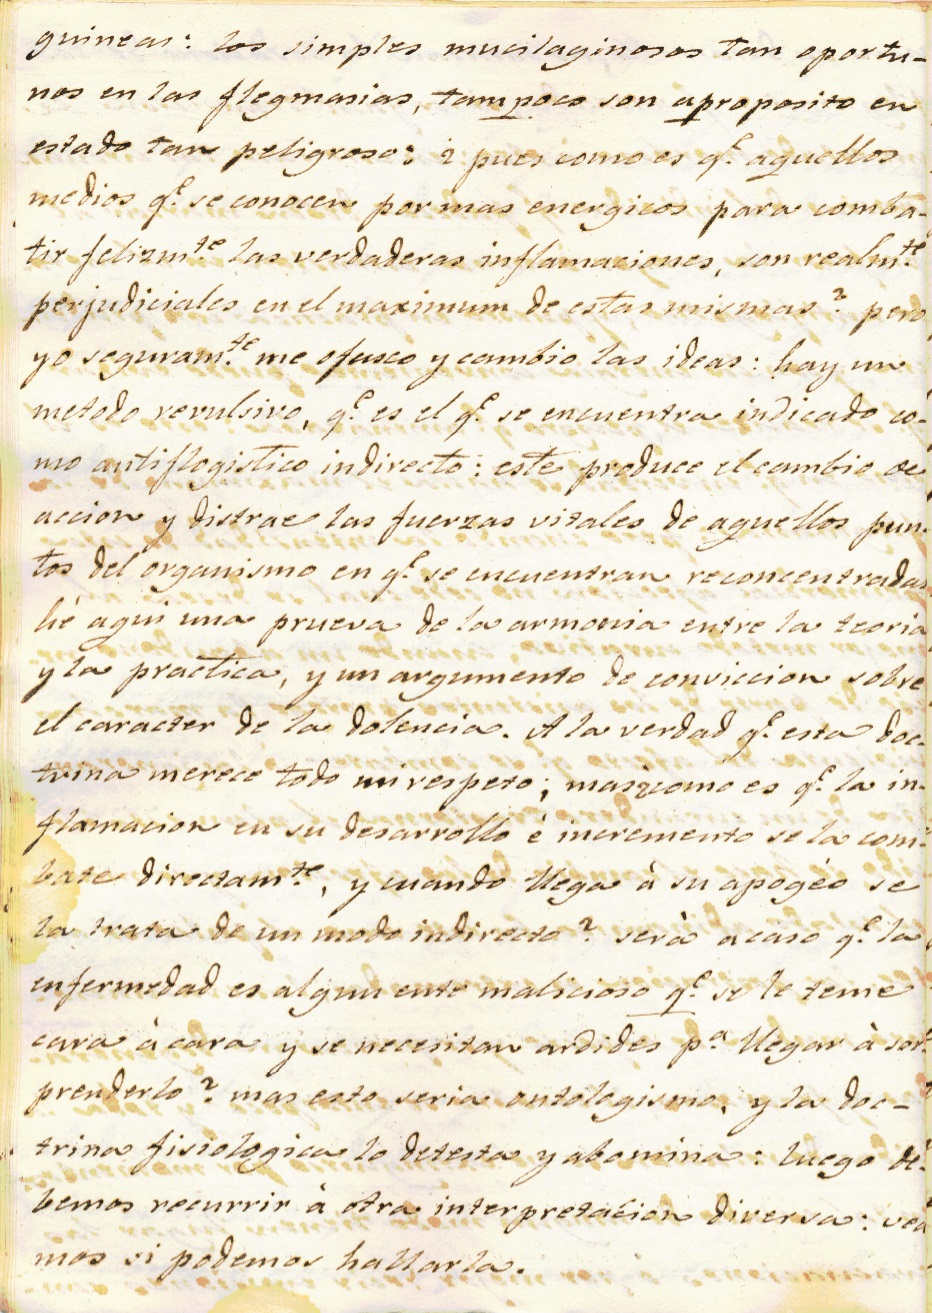 guineas: los simples mucilaginosos tan oportu-
nos en las flegmasias, tampoco son aproposito en
estado tan peligroso: ¿ pues como es q.e aquellos
medios q.e se conocen por mas energicos para comba-
tir felizm.te las verdaderas inflamaciones, son realm.te
perjudiciales en el maximum de estas mismas? pero
yo seguram.te me ofusco y cambio las ideas: hay un
metodo revulsivo, q.e es el q.e se encuentra indicado co-
mo antiflogistico indirecto: este produce el cambio de
accion y distrae las fuerzas vitales de aquellos pun-
tos del organismo en q.e se encuentran reconcentradas
hé aqui una prueva de la armonia entre la teoria
y la practica, y un argumento de conviccion sobre
el caracter de la dolencia. A la verdad q.e esta doc-
trina merece todo mi respeto; mas¿como es q.e la in-
flamacion en su desarrollo é incremento se la com-
bate directam.te, y cuando llega à su apogéo se
la trata de un modo indirecto? serà acaso q.e la
enfermedad es algun ente malicioso q.e se le teme
cara à cara y se necesitan ardides p.a llegar à sor-
prenderlo? mas esto seria ontologismo, y la doc-
trina fisiologica lo detesta y abomina: luego de-
bemos recurrir à otra interpretacion diversa: vea
mos si podemos hallarla.